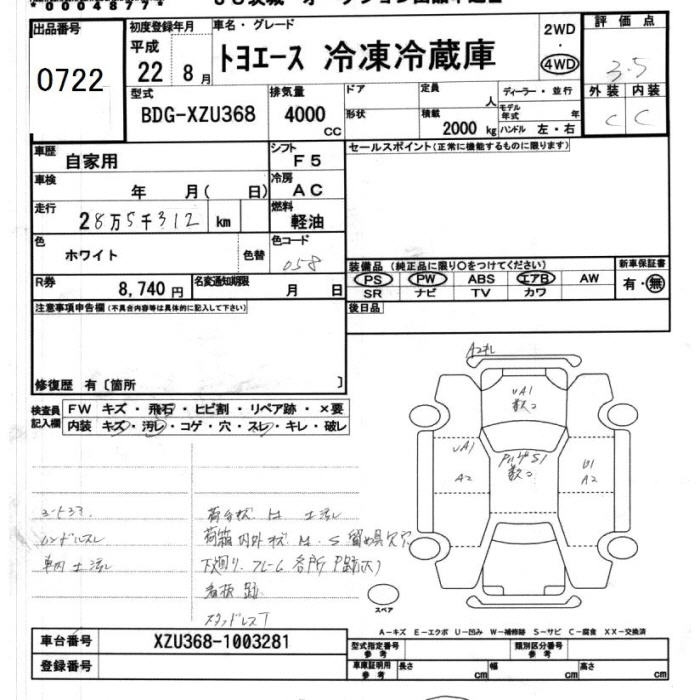 出品番号
0722
初度登録年月
平成
22 8月
車名・グレード
トヨエース 冷凍冷蔵庫
2WD
・
4WD
評価点
3.5
外装 内装
C C
型式
BDG-XZU368
排気量
4000
CC
ドア
形状
定員
人
積載
2000 kg
ディーラー・並行
モデル年式 年
ハンドル 左・右
車歴
自家用
シフト
F5
セールスポイント(正常に機能するものに限ります)
車検
年 月( 日)
冷房
AC
走行
28万5千312 km
燃料
軽油
色
ホワイト
色替
色コード
058
装備品 (純正品に限り○をつけてください)
新車保証書
PS PW ABS エアB AW
有・無
SR ナビ TV カワ
R券
8,740円
名変通知期限
月 日
後日品
注意事項申告欄(不具合内容等は具体的に記入して下さい)
修復歴 有〔箇所 〕
検査員
記入欄
FW キズ・飛石・ヒビ割・リペア跡・×要
内装 キズ・汚レ・コゲ・穴・スレ・キレ・破レ
UA1
数コ
UA1
A2
S1
数コ
U1
A2
ハンドルスレ
車内 土流レ
荷台状 H 土流レ
荷箱内外キズ H S 留め具欠穴
下廻り フレーム 各所
看板 跡
スタッドレスT
スペア
A-キズ E-エクボ U-凹み W-補修跡 S-サビ C-腐食 XX-交換済
車台番号
XZU368-1003281
登録番号
型式指定番号
参考
類別区分番号
参考
車庫証明用
参考
長さ cm 幅 cm 高さ cm